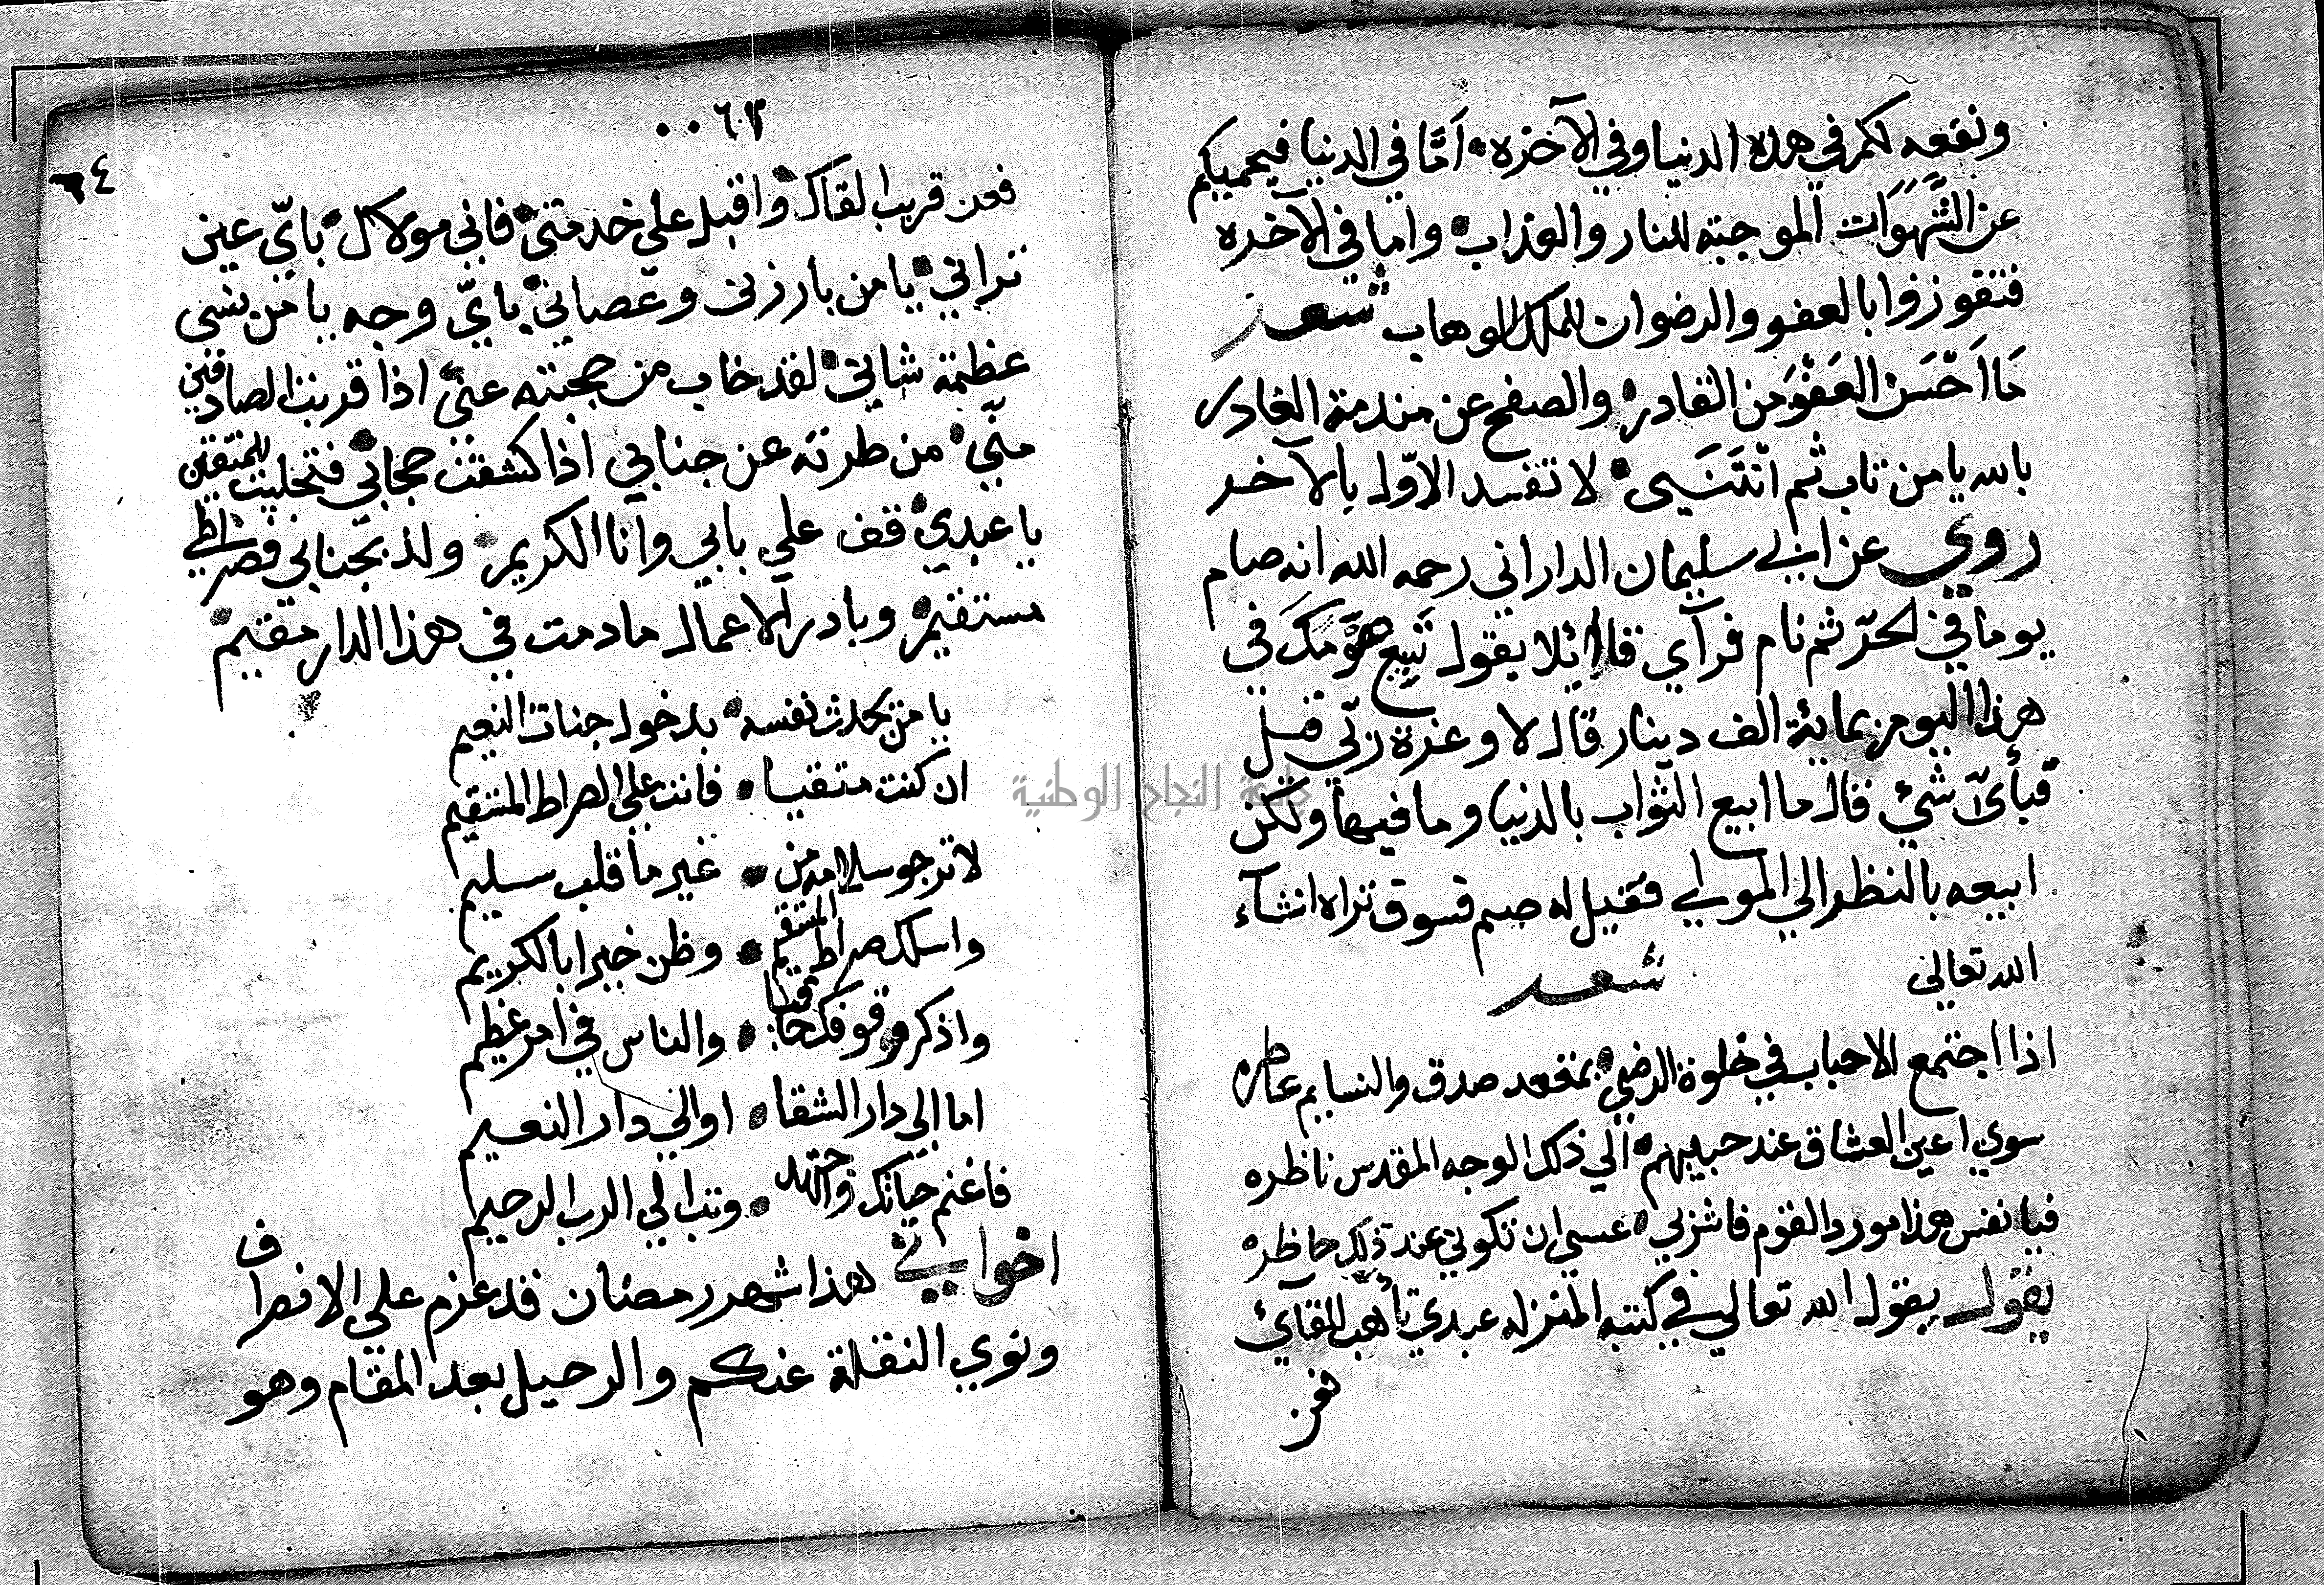 ونفعه لكم في هذه الدنيا وفي الآخره اَمَّا في الدنيا فيحميكم
عن الشَّهَوَات الموجبة للنار والعذاب واما في الآخره
فتفوزوا بالعفو والرضوان للملك الوهاب شعر
مَا اَحْسَن العَفْوَ من القادر والصفح عن مندمة الغادر
بالله يا من تاب ثم انْتَنَسَى لا تفسد الاوّل بالآخر
روي عن ابي سليمان الداراني رحمه الله انه صام
يوما في الحرّ ثم نام فرآي قائلا يقول تبيع صَوْمَكَ في
هذا اليوم بماية الف دينار قال لا وعزة ربّي قيل
فبأىّ شئ قال ما ابيع الثواب بالدنيا وما فيها ولكن
ابيعه بالنظر الي المولي فقيل له صم فسوف تراه انشآء
الله تعالي شعر
اذا اجتمع الاحباب في خلوة الرضي بمقعد صدق والنسايم عاطره
سوي اعين العشاق عند حبيبهم الي ذلك الوجه المقدس ناظره
فيا نفس هذا مورد القوم فاشربي عسي ان تكوني عند ذلك حاظره
يقول يقول الله تعالي في كتبه المنزله عبدي تأهب للقآئ
فعن
٠٠٦٣
٦٤
فعن قريب القاك واقبل علي خدمتي فاني مولاك باىّ عين
تراني يا من بارزني وعصاني باىّ وجه يا من نسي
عظمة شاني لقد خاب من حجبته عني اذا قربت الصادقين
منّي من طردته عن جنابي اذا كشفت حجابي فتجليت للمتقين
يا عبدي قف علي بابي وانا الكريم ولذ بجنابي فصراطي
مستقيم وبادر الاعمال مادمت في هذا الدار مقيم
يا من يحدث نفسه بدخول جنات النعيم
ان كنت متقيا فانت علي الصراط المستقيم
لا ترجو سلامة من غير ما قلب سليم
واسلك صراط المستقيم وظن خيرا بالكريم
واذكر وقوفك خائفا والناس في امر عظيم
اما الي دار الشقا او الي دار النعيم
فاغنم حياتك واجتهد وتب الي الرب الرحيم
اخواني هذا شهر رمضان قد عزم علي الانصراف
ونوي النقلة عنكم والرحيل بعد المقام وهو
جامعة النجاح الوطنية